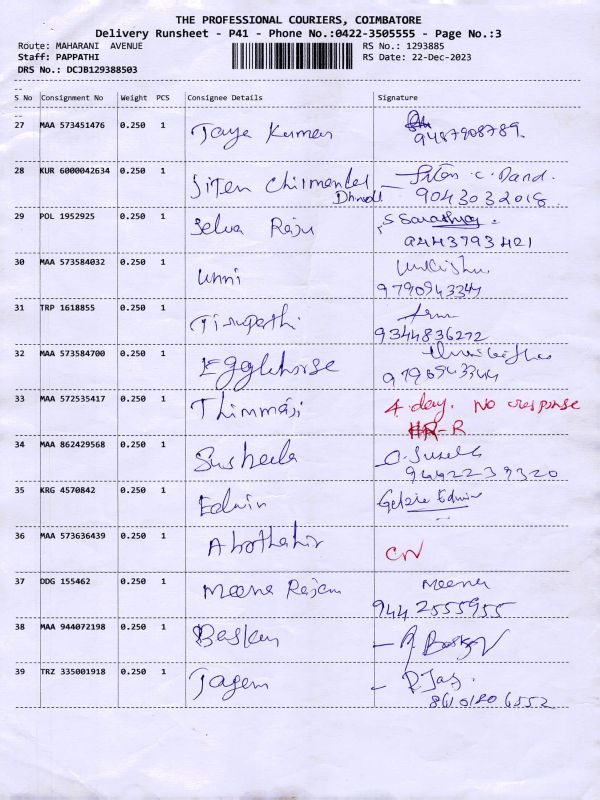 THE PROFESSIONAL COURIERS, COIMBATORE
Delivery Runsheet - P41 - Phone No.:0422-3505555 - Page No.:3
Route: MAHARANI AVENUE RS No.: 1293885
Staff: PAPPATHI RS Date: 22-Dec-2023
DRS No.: DCJB129388503
S No Consignment No Weight PCS Consignee Details Signature
27 MAA 573451476 0.250 1 Jaya Kumar
9487908789.
28 KUR 6000042634 0.250 1 Jiten Chirmandal
Dhnadl 9043032018
29 POL 1952925 0.250 1 Selva Raju S Saraswathy
9443793421
30 MAA 573584032 0.250 1 Unni
9790943344
31 TRP 1618855 0.250 1 Tirupathi
9344836272
32 MAA 573584700 0.250 1 Egglehorse
9790943344
33 MAA 572535417 0.250 1 Thimmaji 4 day. No response
R
34 MAA 862429568 0.250 1 Susheela
9442239320
35 KRG 4570842 0.250 1 Edwin Edwin
36 MAA 573636439 0.250 1 Abothahir
37 DDG 155462 0.250 1 Meena Rajam Meena
9442555955
38 MAA 944072198 0.250 1 Baskar
39 TRZ 335001918 0.250 1 Jagem P. Jag.
86101806552